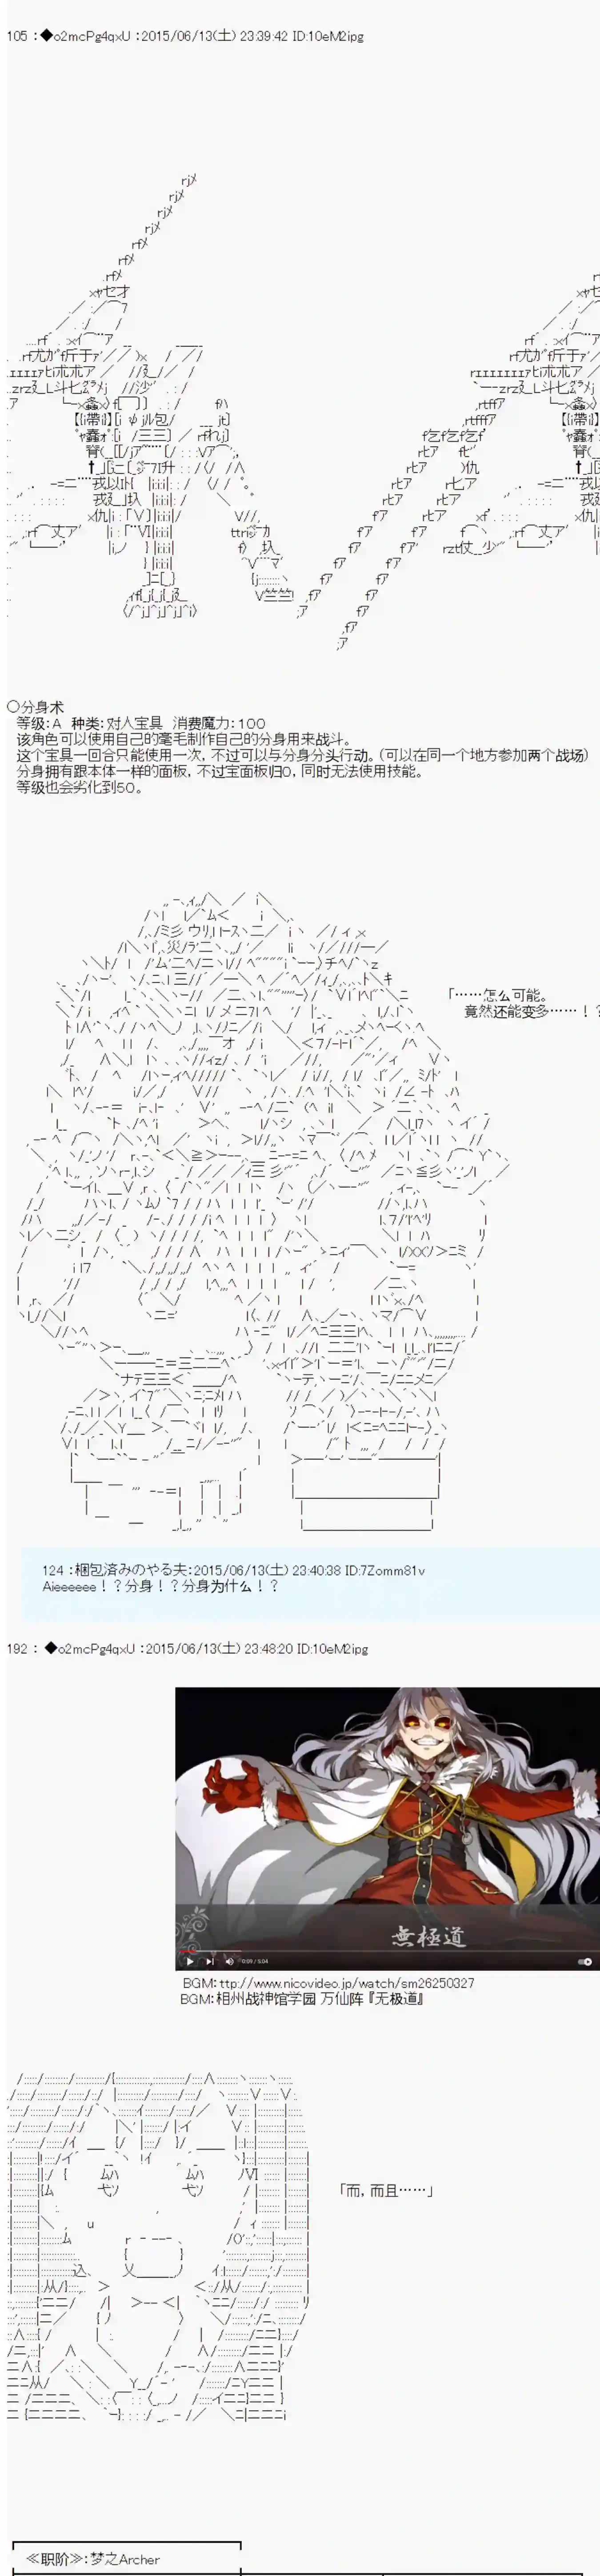 105 ：◆o2mcPg4qxU ：2015/06/13(土) 23:39:42 ID:10eM2ipg
○分身术
等级：A 种类：对人宝具 消费魔力：100
该角色可以使用自己的毫毛制作自己的分身用来战斗。
这个宝具一回合只能使用一次，不过可以与分身分头行动。（可以在同一个地方参加两个战场）
分身拥有跟本体一样的面板，不过宝面板归0，同时无法使用技能。
等级也会劣化到50。
「……怎么可能。
竟然还能变多……！？
124 ：梱包済みのやる夫：2015/06/13(土) 23:40:38 ID:7Zomm81v
Aieeeeee！？分身！？分身为什么！？
192 ： ◆o2mcPg4qxU ：2015/06/13(土) 23:48:20 ID:10eM2ipg
無極道
0:09 / 5:04
BGM：ttp://www.nicovideo.jp/watch/sm26250327
BGM：相州战神馆学园 万仙阵『无极道』
「而，而且……」
≪职阶≫：梦之Archer